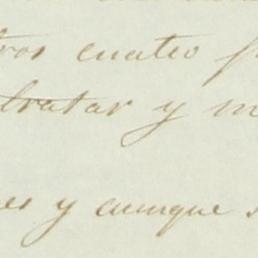 tros cuatro
tratar y m
es y aunque s